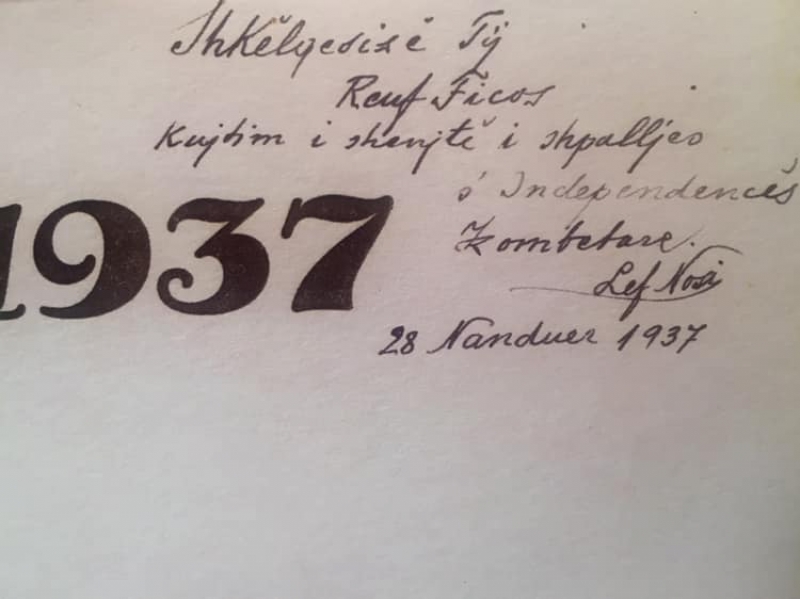 Shkëlqesisë Tij
Reuf Ficos
Kujtim i shenjtë i shpalljes
s' Independencës
Kombëtare.
Lef Nosi
1937
28 Nanduer 1937